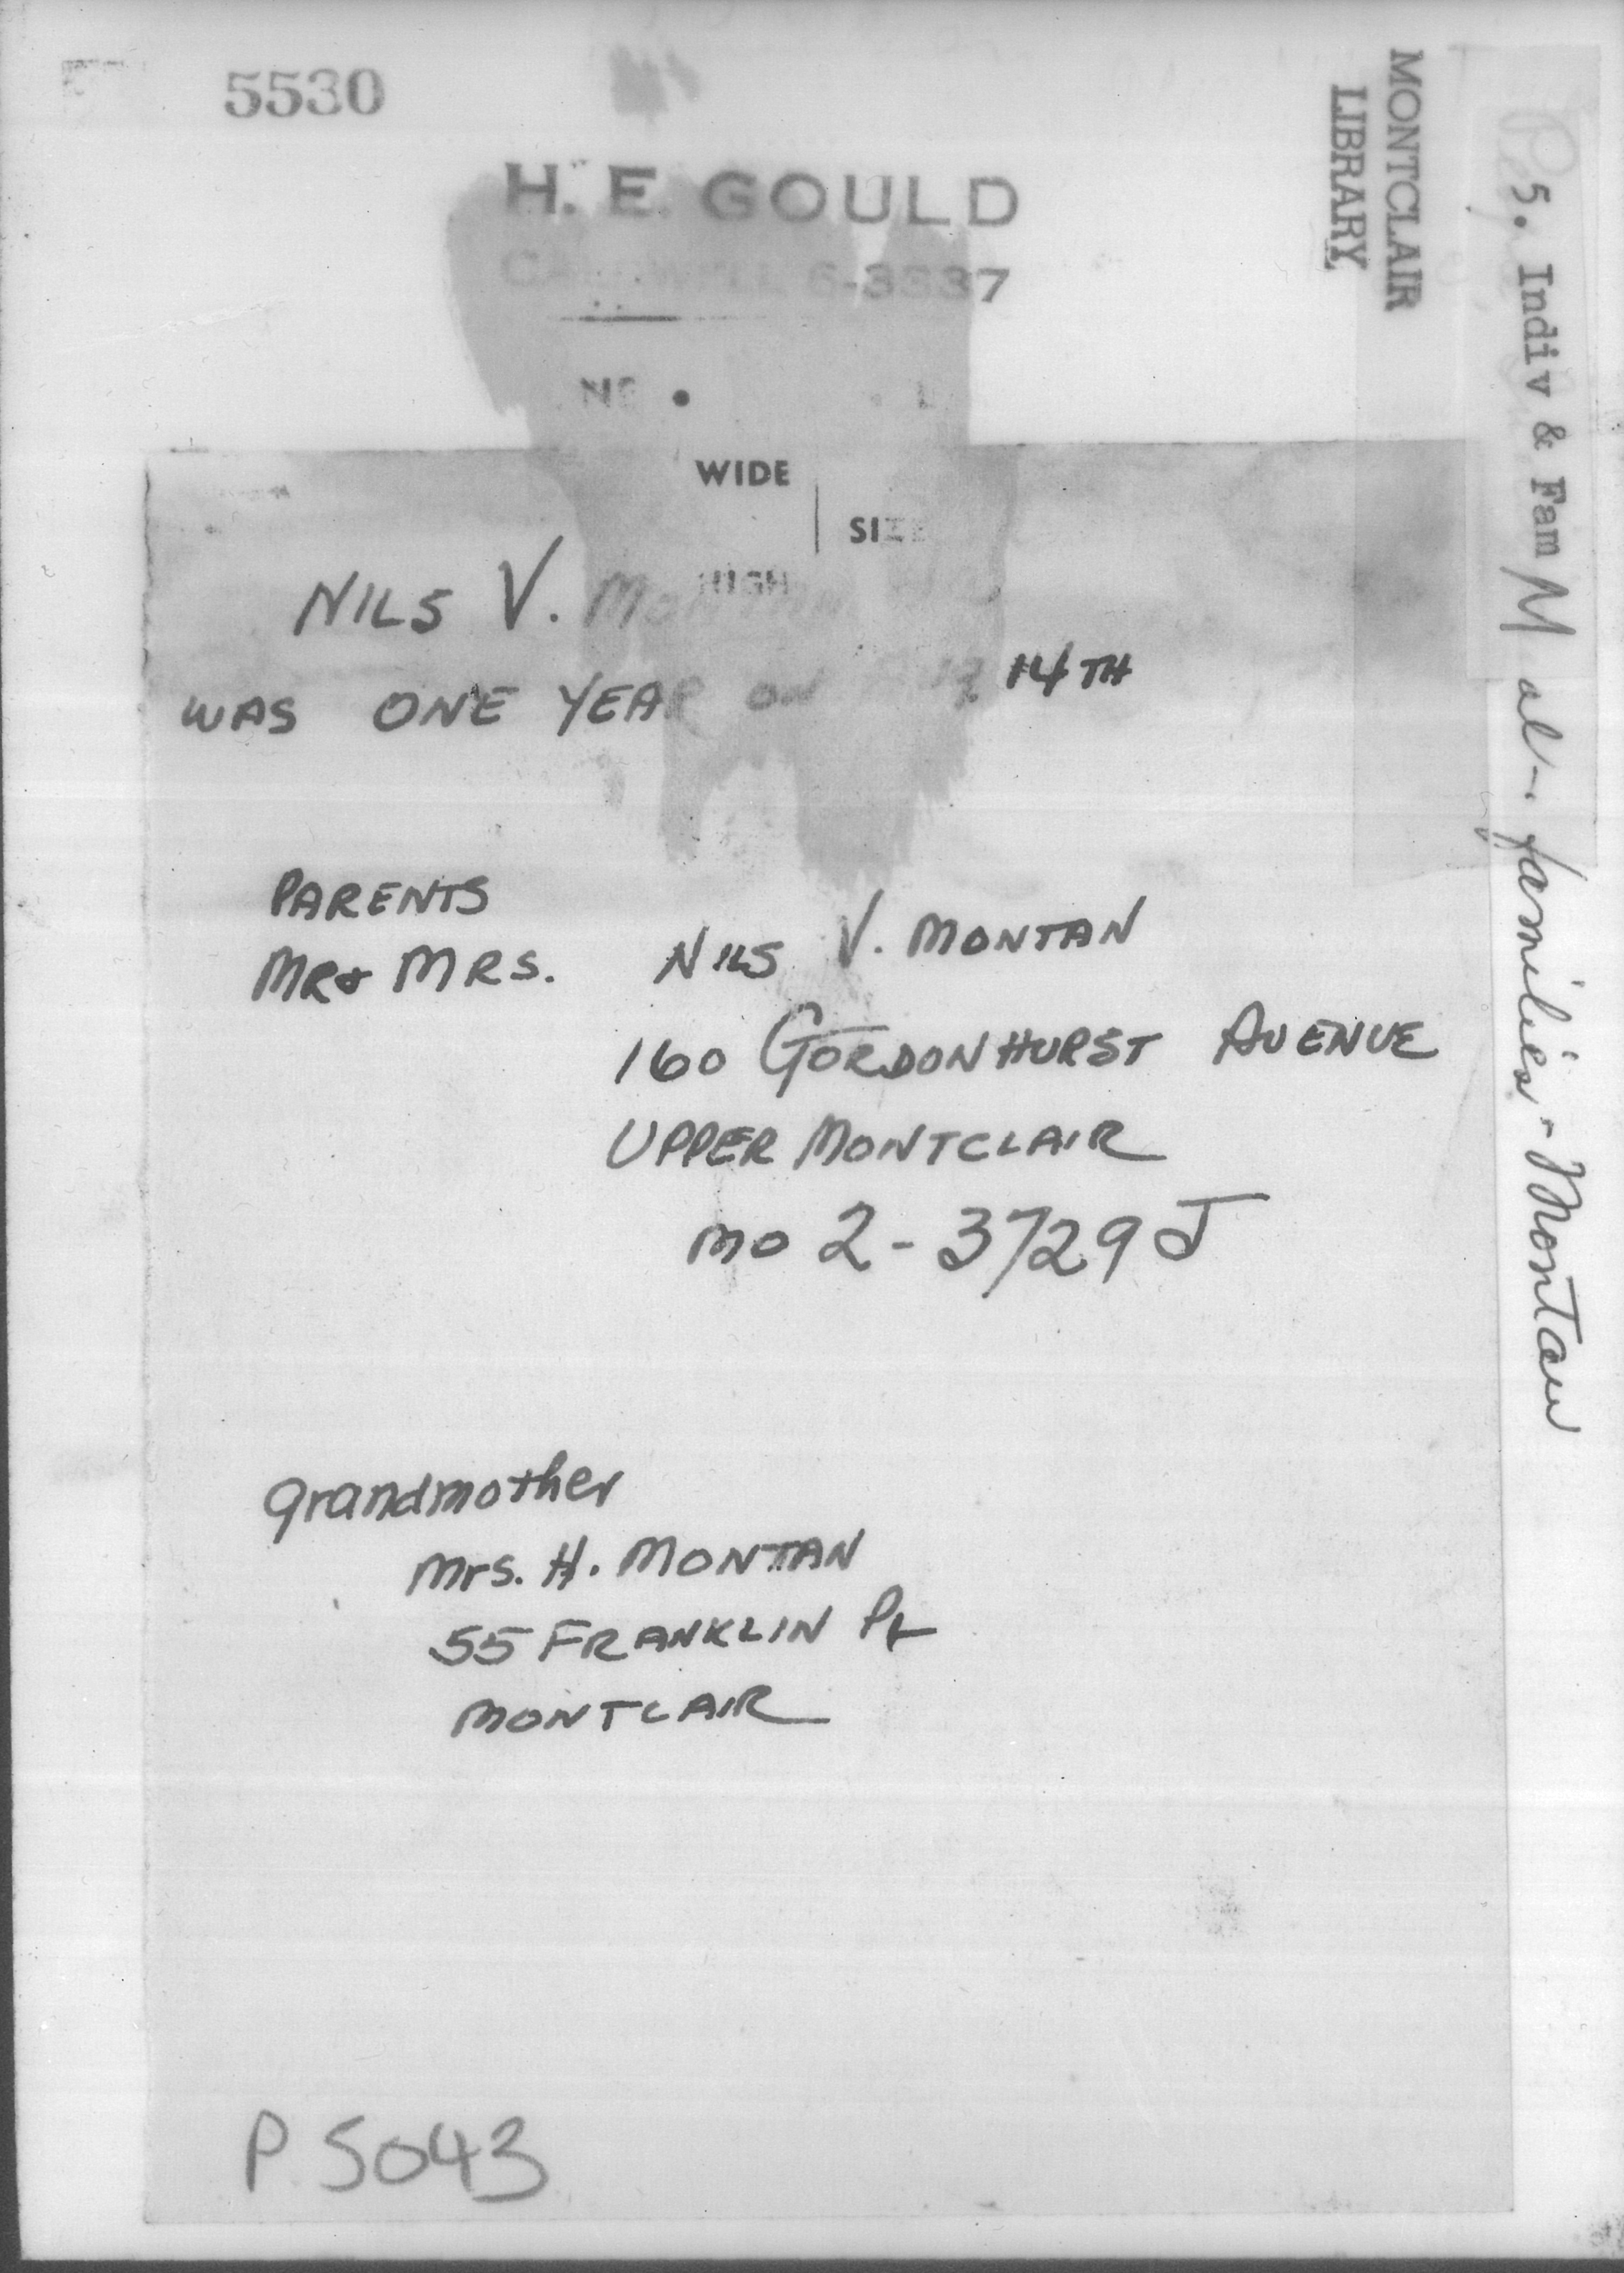 5530
H. E. GOULD
6-3337
WIDE
SIZE
HIGH
NILS V. MONTAN
WAS ONE YEAR ON 14TH
PARENTS
MR & MRS. NILS V. MONTAN
160 GORDONHURST AVENUE
UPPER MONTCLAIR
MO 2-3729J
Grandmother
Mrs. H. MONTAN
55 FRANKLIN PL
MONTCLAIR
P. 5043
MONTCLAIR
LIBRARY
5. Indiv & Fam
families - Montan